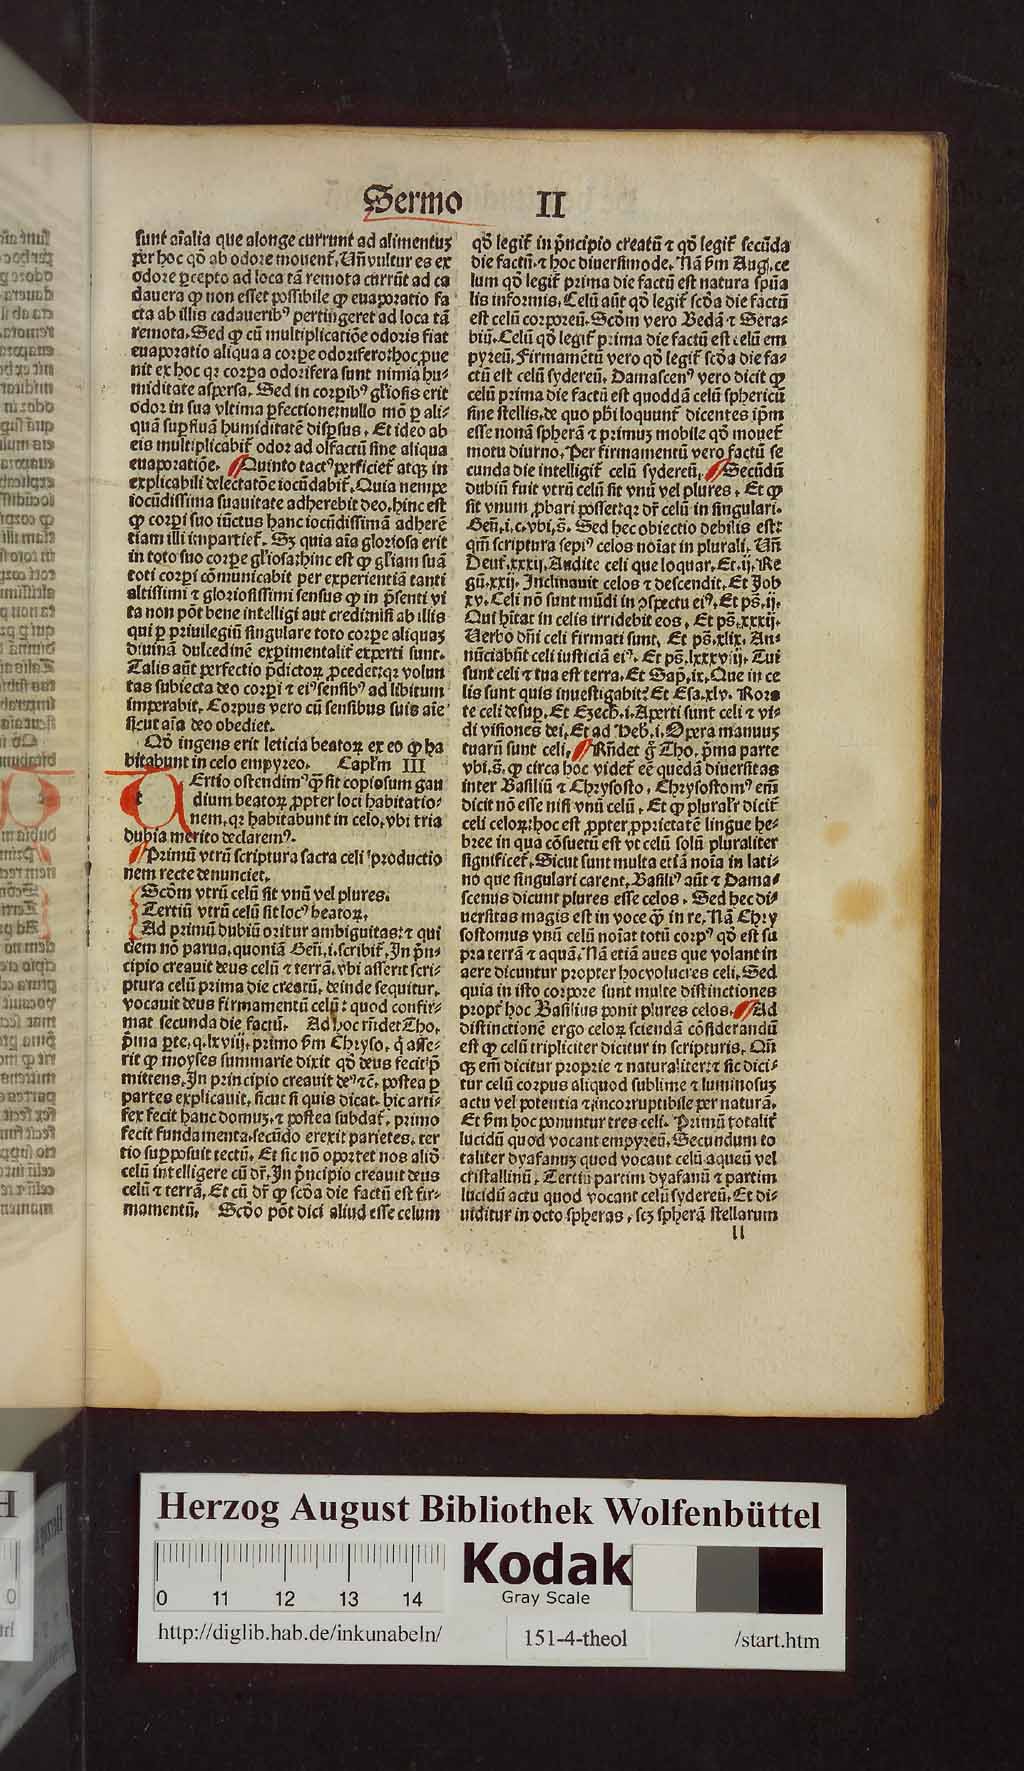 Sermo II
sunt aīalia que alonge currunt ad alimentuꝫ
per hoc qō ab odore mouent᷑. Uñ vultur es ex
odore ꝑcepto ad loca tā remota currūt ad ca
dauera ꝙ non esset possibile ꝙ euaporatio fa
cta ab illis cadaueribꝰ pertingeret ad loca tā
remota. Sed ꝙ cū multiplicatiōe odoris fiat
euaporatio aliqua a corꝑe odorifero: hoc ꝓue
nit ex hoc qꝛ corꝑa odorifera sunt nimia hu-
miditate aspersa. Sed in corꝑibꝰ gl'iosis erit
odor in sua vltima ꝑfectione: nullo mō ꝑ ali-
quā suꝑfluā humiditatē disꝑsus. Et ideo ab
eis multiplicabit᷑ odor ad olfactū sine aliqua
euaporatiōe. Quinto tactꝰ ꝑficiet᷑ atqꝫ in
explicabili delectatōe iocūdabit᷑. Quia nempe
iocūdissima suauitate adherebit deo. hinc est
ꝙ corꝑi suo iūctus hanc iocūdissimā adherē
tiam illi impartiet᷑. Sꝫ quia aīa gloriosa erit
in toto suo corꝑe gl'iosa: hinc est ꝙ gl'iam suā
toti corꝑi cōmunicabit per experientiā tanti
altissimi ⁊ gloriosissimi sensus ꝙ in p̄senti vi
ta non pōt bene intelligi aut credi: nisi ab illis
qui ꝑ priuilegiū singulare toto corꝑe aliquaꝫ
diuinā dulcedinē exꝑimentalit᷑ experti sunt.
Talis aūt ꝑfectio p̄dictoꝝ ꝓcedet: qꝛ volun
tas subiecta deo corꝑi ⁊ eiꝰ sensibꝰ ad libitum
imperabit. Corpus vero cū sensibus suis aīe
sicut aīa deo obediet.
Qō ingens erit leticia beatoꝝ ex eo ꝙ ha
bitabunt in celo empyreo. Capl'm III
t Ertio ostendimꝰ ꝙ̄ sit copiosum gau
dium beatoꝝ ꝓpter loci habitatio-
nem, qꝛ habitabunt in celo, vbi tria
dubia merito declaremꝰ.
Primū vtrū scriptura sacra celi productio
nem recte denunciet.
Scōm vtrū celū sit vnū vel plures.
Tertiū vtrū celū sit locꝰ beatoꝝ.
Ad primū dubiū oritur ambiguitas: ⁊ qui
dem nō parua, quoniā Geñ. i. scribit᷑. In p̄n-
cipio creauit deus celū ⁊ terrā. vbi asserit scri-
ptura celū prima die creatū. deinde sequitur.
vocauit deus firmamentū celū: quod confir-
mat secunda die factū. Ad hoc rn̄det Tho.
p̄ma ꝑte. q. lxviij. primo ẜm Chryso. q̇ asse-
rit ꝙ moyses summarie dixit qō deus fecit p̄
mittens. In principio creauit deꝰ ⁊c̄. postea ꝑ
partes explicauit, sicut si quis dicat. hic arti-
fex fecit hanc domuꝫ. ⁊ postea subdat᷑. primo
fecit fundamenta. secūdo erexit parietes. ter
tio supposuit tectū. Et sic nō oportet nos aliō
celū intelligere cū dr̄. In p̄ncipio creauit deus
celū ⁊ terrā. Et cū dr̄ ꝙ scōa die factū est fir-
mamentū. Scōo pōt dici aliud esse celum
qō legit᷑ in p̄ncipio creatū ⁊ qō legit᷑ secūda
die factū. ⁊ hoc diuersimode. Nā ẜm Aug. ce
lum qō legit᷑ prima die factū est natura spūa
lis informis. Celū aūt qō legit᷑ scōa die factū
est celū corporeū. Scōm vero Bedā ⁊ Stra-
biū. Celū qō legit᷑ prima die factū est celū em
pyreū. Firmamētū vero qō legit᷑ scōa die fa-
ctū est celū sydereū. Damascenꝰ vero dicit ꝙ
celū prima die factū est quoddā celū sphericū
sine stellis. de quo ph̄i loquunt᷑ dicentes ip̄m
esse nonā spherā ⁊ primuꝫ mobile qō mouet᷑
motu diurno. Per firmamentū vero factū se
cunda die intelligit᷑ celū sydereū. Secūdū
dubiū fuit vtrū celū sit vnū vel plures. Et ꝙ
sit vnum ꝓbari posset: qꝛ dr̄ celū in singulari.
Geñ. i. c. vbi. s̄. Sed hec obiectio debilis est:
qm̄ scriptura sepiꝰ celos noīat in plurali. Uñ
Deut᷑. xxxij. Audite celi que loquar. Et. ij. Re
gū. xxij. Inclinauit celos ⁊ descendit. Et Job
xv. Celi nō sunt mūdi in ↄspectu eiꝰ. Et pš. ij.
Qui hitat in celis irridebit eos. Et pš. xxxij.
Uerbo dn̄i celi firmati sunt. Et pš. xlix. An-
nūciabūt celi iusticiā eiꝰ. Et pš. lxxxviij. Tui
sunt celi ⁊ tua est terra. Et Sap̄. ix. Que in ce
lis sunt quis inuestigabit? Et Esa. xlv. Rora
te celi desuꝑ. Et Ezech̄. i. Aperti sunt celi ⁊ vi-
di visiones dei. Et ad Heb̄. i. Opera manuuꝫ
tuarū sunt celi. Rn̄det g̊ Tho. p̄ma parte
vbi. s̄. ꝙ circa hoc videt᷑ eē quedā diuersitas
inter Basiliū ⁊ Chrysosto. Chrysostomꝰ em̄
dicit nō esse nisi vnū celū. Et ꝙ plural'r dicit᷑
celi celoꝝ: hoc est ꝓpter ꝓprietatē lingue he-
bree in qua cōsuetū est vt celū solū pluraliter
significet᷑. Sicut sunt multa etiā noīa in lati-
no que singulari carent. Basiliꝰ aūt ⁊ Dama-
scenus dicunt plures esse celos. Sed hec di-
uersitas magis est in voce ꝙ̄ in re. Nā Chry
sostomus vnū celū noīat totū corpꝰ qō est su
pra terrā ⁊ aquā. Nā etiā aues que volant in
aere dicuntur propter hoc volucres celi. Sed
quia in isto corpore sunt multe distinctiones
propt᷑ hoc Basilius ponit plures celos. Ad
distinctionē ergo celoꝝ sciendā cōsiderandū
est ꝙ celū tripliciter dicitur in scripturis. Qn̄
qꝫ em̄ dicitur proprie ⁊ naturaliter: ⁊ sic dici-
tur celū corpus aliquod sublime ⁊ luminosuꝫ
actu vel potentia ⁊ incorruptibile per naturā.
Et ẜm hoc ponuntur tres celi. Primū totalit᷑
lucidū quod vocant empyreū. Secundum to
taliter dyafanuꝫ quod vocant celū aqueū vel
cristallinū. Tertiū partim dyafanū ⁊ partim
lucidū actu quod vocant celū sydereū. Et di-
uiditur in octo spheras. scꝫ spherā stellarum
ll
Herzog August Bibliothek Wolfenbüttel
0 11 12 13 14
Kodak
Gray Scale
http://diglib.hab.de/inkunabeln/ 151-4-theol /start.htm